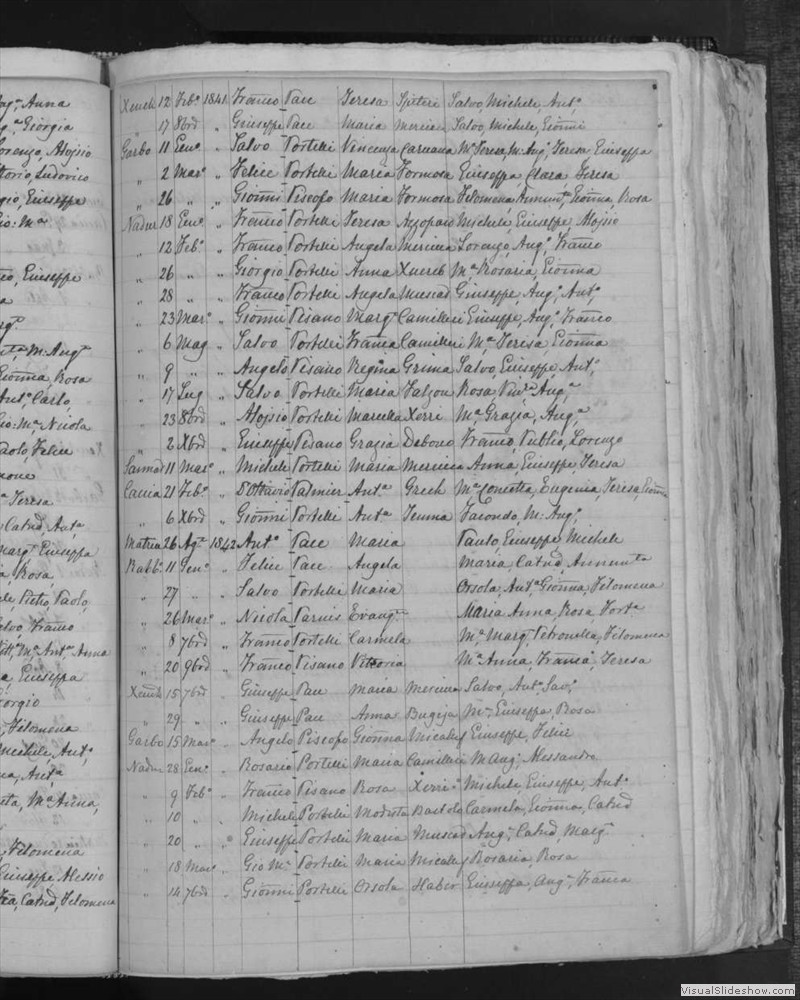 ug.ª Anna
Giorgia
Lorenzo, Alojsio
ttorio, Ludovico
gio, Giuseppa
Gio: M.ª
Giuseppe
Giõnna, Rosa
Ant.º Carlo,
Gio: M.ª Nicola
Paolo, Felice
Teresa
Catnd, Ant.ª
Marg.ª Giuseppa
Rosa,
Pietro, Paolo
Salvo, Franco
M.ª Ant.ª Anna
Giuseppa
Giorgio
Filomena
Michele, Ant.º
Ant.ª
M.ª Anna,
Filomena
Giuseppe Alessio
Catnd, Filomena
Xeuch 12 Feb.º 1841 Franco Pace Teresa Spiteri Salvo, Michele, Ant.º
" 17 8brê " Giuseppe Pace Maria Mercieca Salvo, Michele, Giõnni
Garbo 11 Gen.º " Salvo Portelli Vincenza Caruana M.ª Teresa, M: Aug.ª, Teresa, Giuseppa
" 2 Mar.º " Felice Portelli Maria Formosa Giuseppa Clara Teresa
" 26 " " Giõnni Piscopo Maria Formosa Filomena, Annunt.ª, Giõnna, Rosa
Nadur 18 Gen.º " Franco Portelli Teresa Azzopardi Michele, Giuseppe, Alojsio
" 12 Feb.º " Franco Portelli Angela Mercieca Lorenzo, Aug.º, Franco
" 26 " " Giorgio Portelli Anna Xuereb M.ª Rosaria, Giõnna
" 28 " " Franco Portelli Angela Muscad Giuseppe, Aug.º, Ant.º
" 23 Mar.º " Giõnni Pisano Marg.ª Camilleri Giuseppe, Aug.º, Franco
" 6 Mag " Salvo Portelli Franca Camilleri M.ª Teresa, Giõnna
" 9 " " Angelo Pisano Regina Grima Salvo, Giuseppe, Ant.º
" 17 Lug " Salvo Portelli Maria Falzon Rosa Aug.ª
" 23 8brê " Alojsio Portelli Marcella Xerri M.ª Grazia, Aug.ª
" 2 Xbrê " Giuseppe Pisano Grazia Debono Franco, Publio, Lorenzo
Sannat 11 Mar.º " Michele Portelli Maria Mercieca Anna, Giuseppe, Teresa
Caccia 21 Feb.º " D'Ottavio Palmier Ant.ª Grech M.ª Concetta, Eugenia, Teresa, Giõnna
" 6 Xbrê " Giõnni Portelli Ant.ª Facondo, M: Aug.º
Matrice 26 Ag.º 1842 Ant.º Pace Maria Paulo, Giuseppe, Michele
Rabb.º 11 Gen.º " Felice Pace Angela Maria, Catnd, Annunt.ª
" 27 " " Salvo Portelli Maria Orsola, Ant.ª Giõnna, Filomena
" 26 Mar.º " Nicola Parnis Evang.ª Maria Anna, Rosa Fort.ª
" 8 7brê " Franco Portelli Carmela M.ª Marg.ª Petronella, Filomena
" 20 9brê " Franco Pisano Vittoria M.ª Anna, Franca, Teresa
Xeuch 15 7brê " Giuseppe Pace Maria Mercieca Salvo, Ant.º Sav.º
" 29 " " Giuseppe Pace Anna Bugeja M.ª Giuseppa, Rosa
Garbo 15 Mar.º " Angelo Piscopo Giõnna Micallef Giuseppe, Felice
Nadur 28 Gen.º " Rosario Portelli Maria Camilleri M: Aug.º Alessandro
" 9 Feb.º " Franco Pisano Rosa Xerri Michele Giuseppe, Ant.º
" 10 " " Michele Portelli Modesta Bartolo Carmela, Giõnna, Catnd
" 20 " " Giuseppe Portelli Maria Muscad Aug.ª Catnd, Marg.ª
" 18 Mar.º " Gio M.ª Portelli Maria Micallef Rosaria, Rosa
" 14 7brê " Giõnni Portelli Orsola Haber Giuseppa, Aug.ª, Franca
VisualSlideshow.com